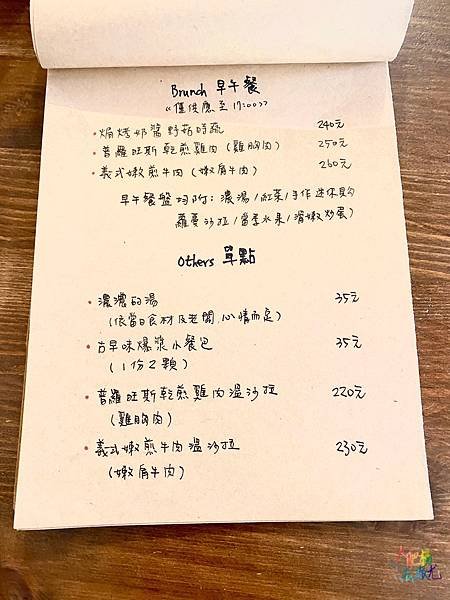 Brunch 早午餐
《僅供應至17:00》
焗烤奶醬野菇時蔬 240元
普羅旺斯乾煎雞肉(雞胸肉) 250元
義式嫩煎牛肉(嫩肩牛肉) 260元
早午餐盤均附:濃湯/紅茶/手作迷迭貝勾
蘿蔓沙拉/當季水果/滑嫩炒蛋)
Others 單點
濃濃的湯 35元
(依當日食材及老闆心情而定)
古早味爆漿小餐包 35元
(1份2顆)
普羅旺斯乾煎雞肉溫沙拉 220元
(雞胸肉)
義式嫩煎牛肉溫沙拉 230元
(嫩肩牛肉)